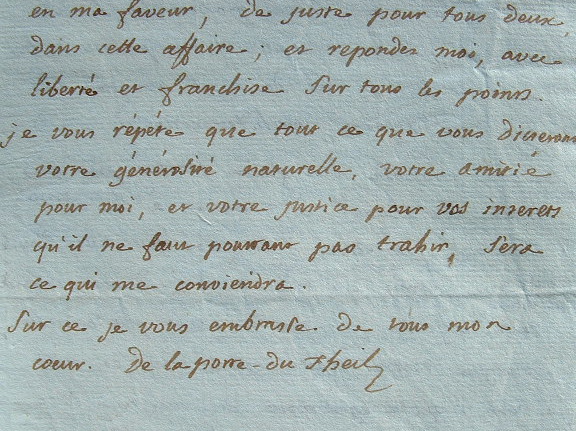 en ma faveur, de juste pour tous deux,
dans cette affaire; et repondez moi, avec
liberté et franchise sur tous les points.
je vous répéte que tout ce que vous dicteront
votre générosité naturelle, votre amitié
pour moi, et votre justice pour vos interets
qu'il ne faut pourtant pas trahir, sera
ce qui me conviendra.
Sur ce je vous embrasse de tous mon
coeur. De la porte-du theil